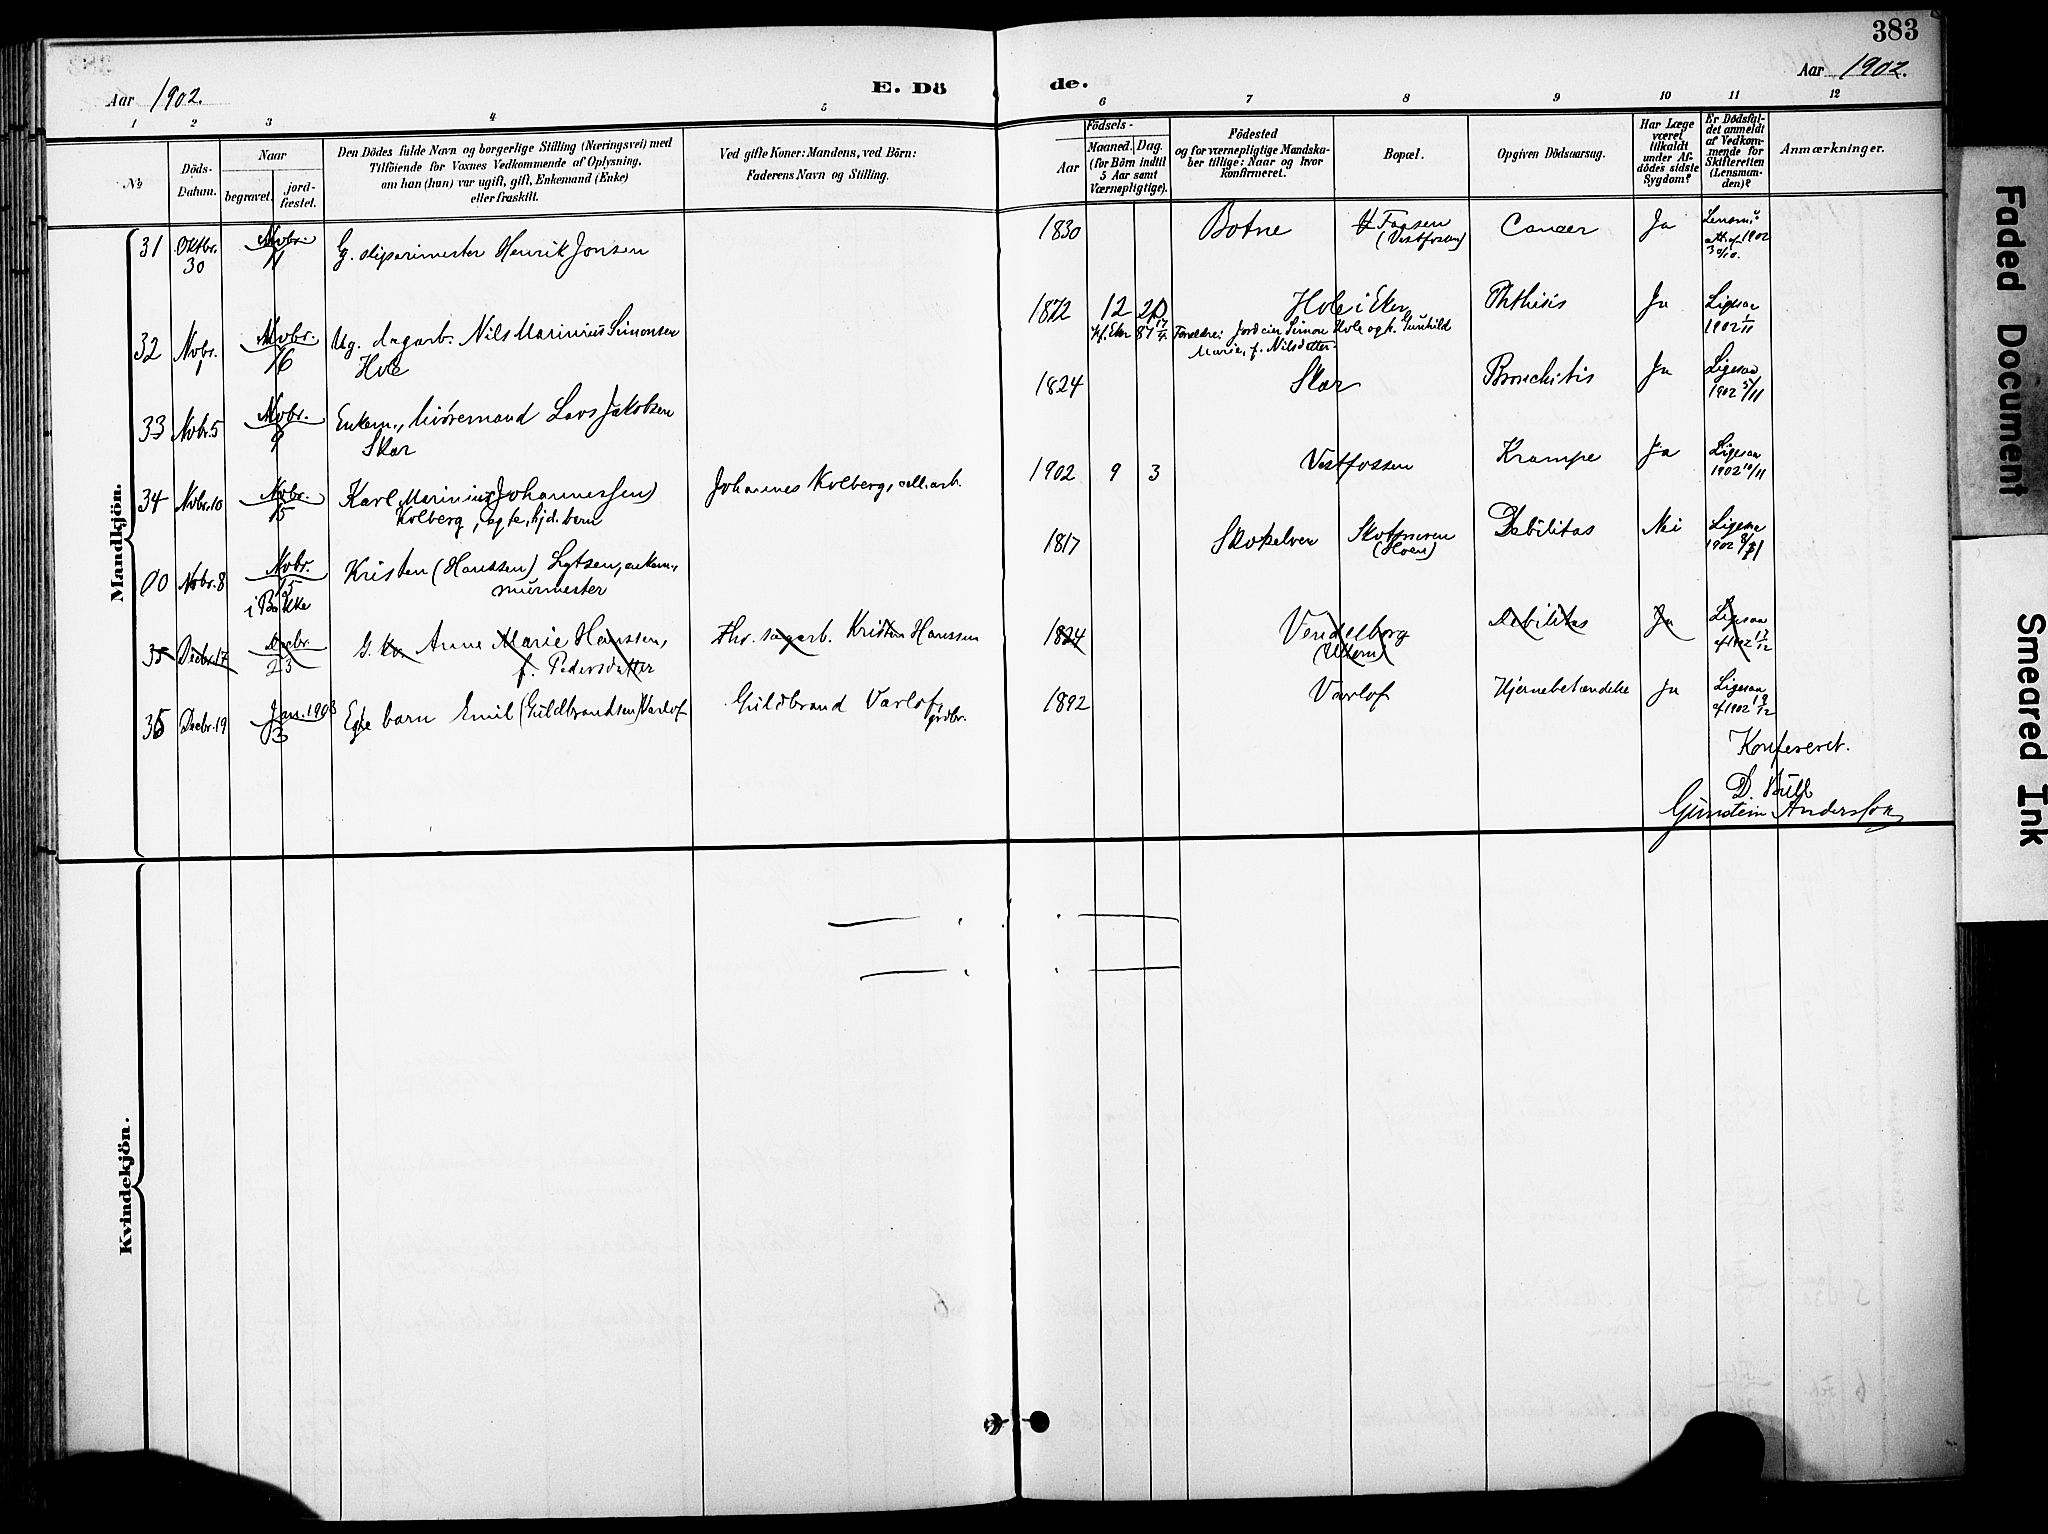 383
Aar 1902.
E. Dö
de.
Aar 1902.
1 2 3 4 5 6 7 8 9 10 11 12
№
Döds-
Datum.
Naar
begravet.
jord-
fæstet.
Den Dödes fulde Navn og borgerlige Stilling (Næringsvei) med
Tilföiende for Voxnes Vedkommende af Oplysning,
om han (hun) var ugift, gift, Enkemand (Enke)
eller fraskilt.
Ved gifte Koner: Mandens, ved Börn:
Faderens Navn og Stilling.
Födsels-
Aar
Maaned.
Dag.
(for Börn indtil
5 Aar samt
Værnepligtige).
Födested
og for værnepligtige Mandska-
ber tillige: Naar og hvor
Konfirmeret.
Bopæl.
Opgiven Dödsaarsag.
Har Læge
været
tilkaldt
under Af-
dödes sidste
Sygdom?
Er Dödsfal-
det anmeldt
af Vedkom-
mende for
Skifteretten
(Lensman-
den)?
Anmærkninger.
Mandkjön.
31 Oktbr. 30 Novbr. 11 G. sliperimester Henrik Jonsen 1830 Botne Fossen (Vestfossen) Cancer Ja
32 Novbr. 1 Novbr. 16 Ug. dagarb. Nils Marinius Simonsen
Hole
1872 12 20 Hole i Eker Phthisis Ja Ligesaa 1902 1/11
Kf. Eker 87 17/4. Forældre: Jordeier Simon Hole og k. Gunhild
Marie, f. Nilsdatter
33 Novbr. 5 Novbr. 9 Enkem., livöremand Lars Jakobsen
Skar
1824 Skar Bronchitis Ja Ligesaa 1902 5/11
34 Novbr. 10 Novbr. 15 Karl Marinius (Johannessen)
Kolberg, ægte, hjd. barn
Johannes Kolberg, cell.arb. 1902 9 3 Vestfossen Krampe Ja Ligesaa 1902 10/11
00 Novbr. 8 Novbr. 15 i Bakke Kristen (Hanssen) Lytsen, enkem.,
murmester
1817 Skotselven Debilitas Nei Ligesaa 1902 8/11
35 Decbr. 17 Decbr 23 G. kv. Anne Marie Hanssen,
f. Pedersdatter
Fhv. sagarb. Kristen Hanssen 1824 Vendelborg Debilitas Ja Ligesaa af 1902 17/12
35 Decbr. 19 Jan. 1903 3 Egte barn Emil (Guldbrandsen) Varlof Guldbrand Varlof, grdbr. 1892 Varlof Hjernebetændelse Ja Ligesaa af 1902 19/12
Konfereret.
D. Bull
Gunstein Anderssen
Kvindekjön.
Faded Document
Smeared Ink